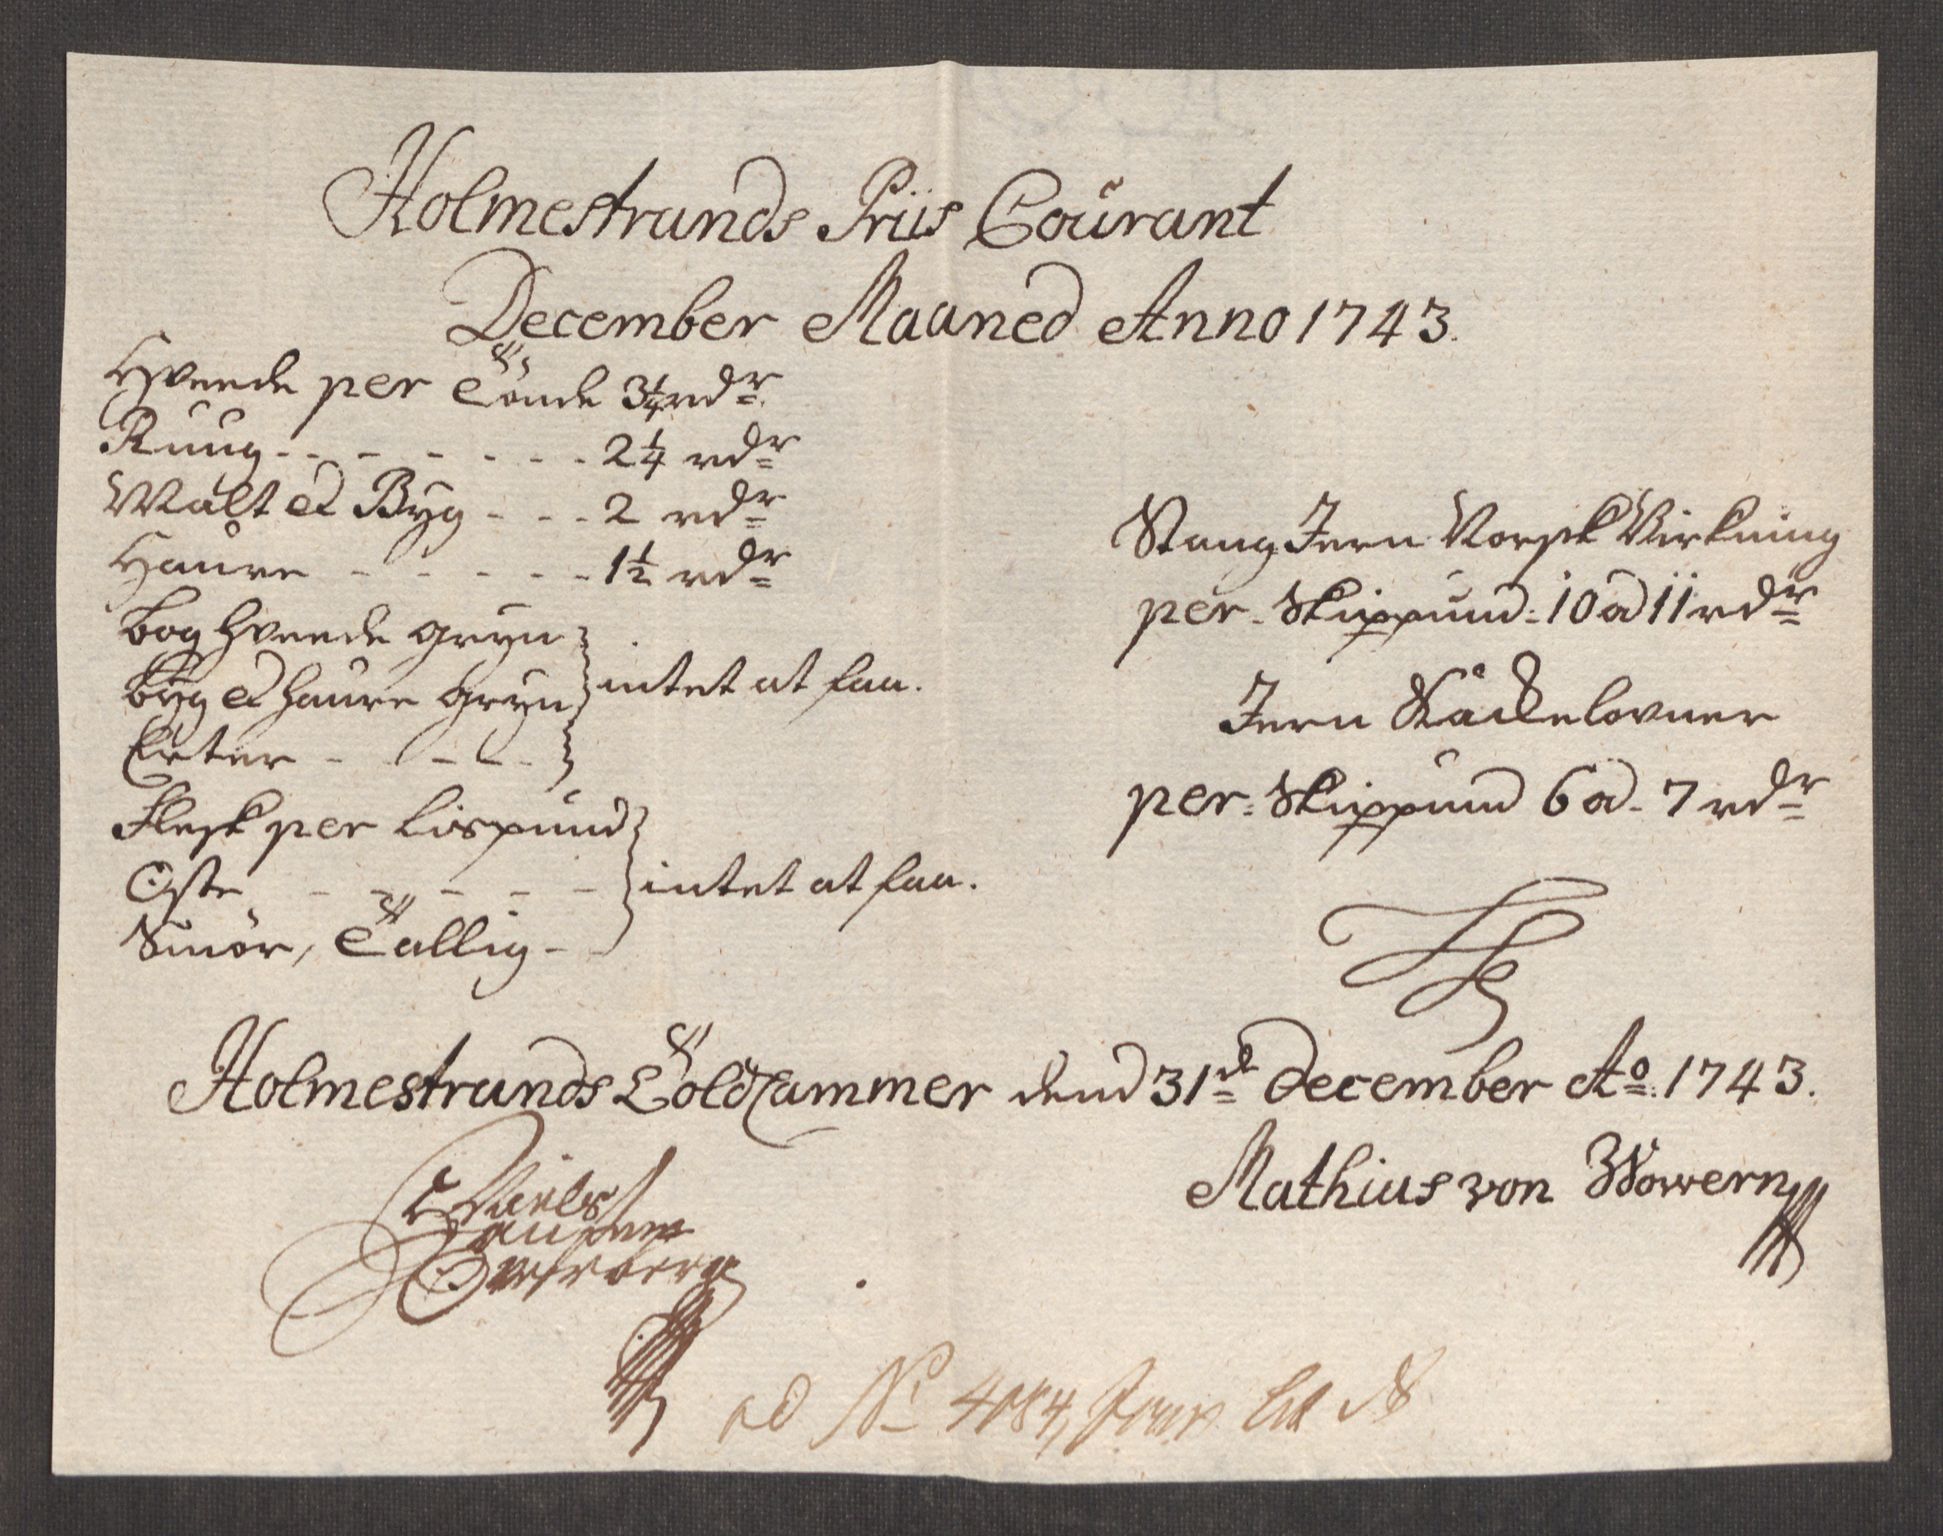 Holmestrands Priis Courant
December Maaned Anno 1743.
Hveede per Tönde 3 1/4 rdr
Ruug - - - - - - - 2 1/4 rdr
Malt et Byg - - - 2 rdr
Haure - - - - - 1 1/2 rdr
Bog Hveede gryn
Byg et Haure gryn } intet at faa.
Erter - - - - -
Flesk per Lispund
Oste - - - - - - } intet at faa.
Smör, Tallig - -
Stang Jern Norsk Virkning
per. Skippund: 10 a 11 rdr
Jern Kackelovner
per. Skippund 6 a 7 rdr
Holmestrands Toldcammer dend 31de December Ao. 1743.
Niels
Overberg
Mathias von Wowern
ad No 4084, Jour Litt B